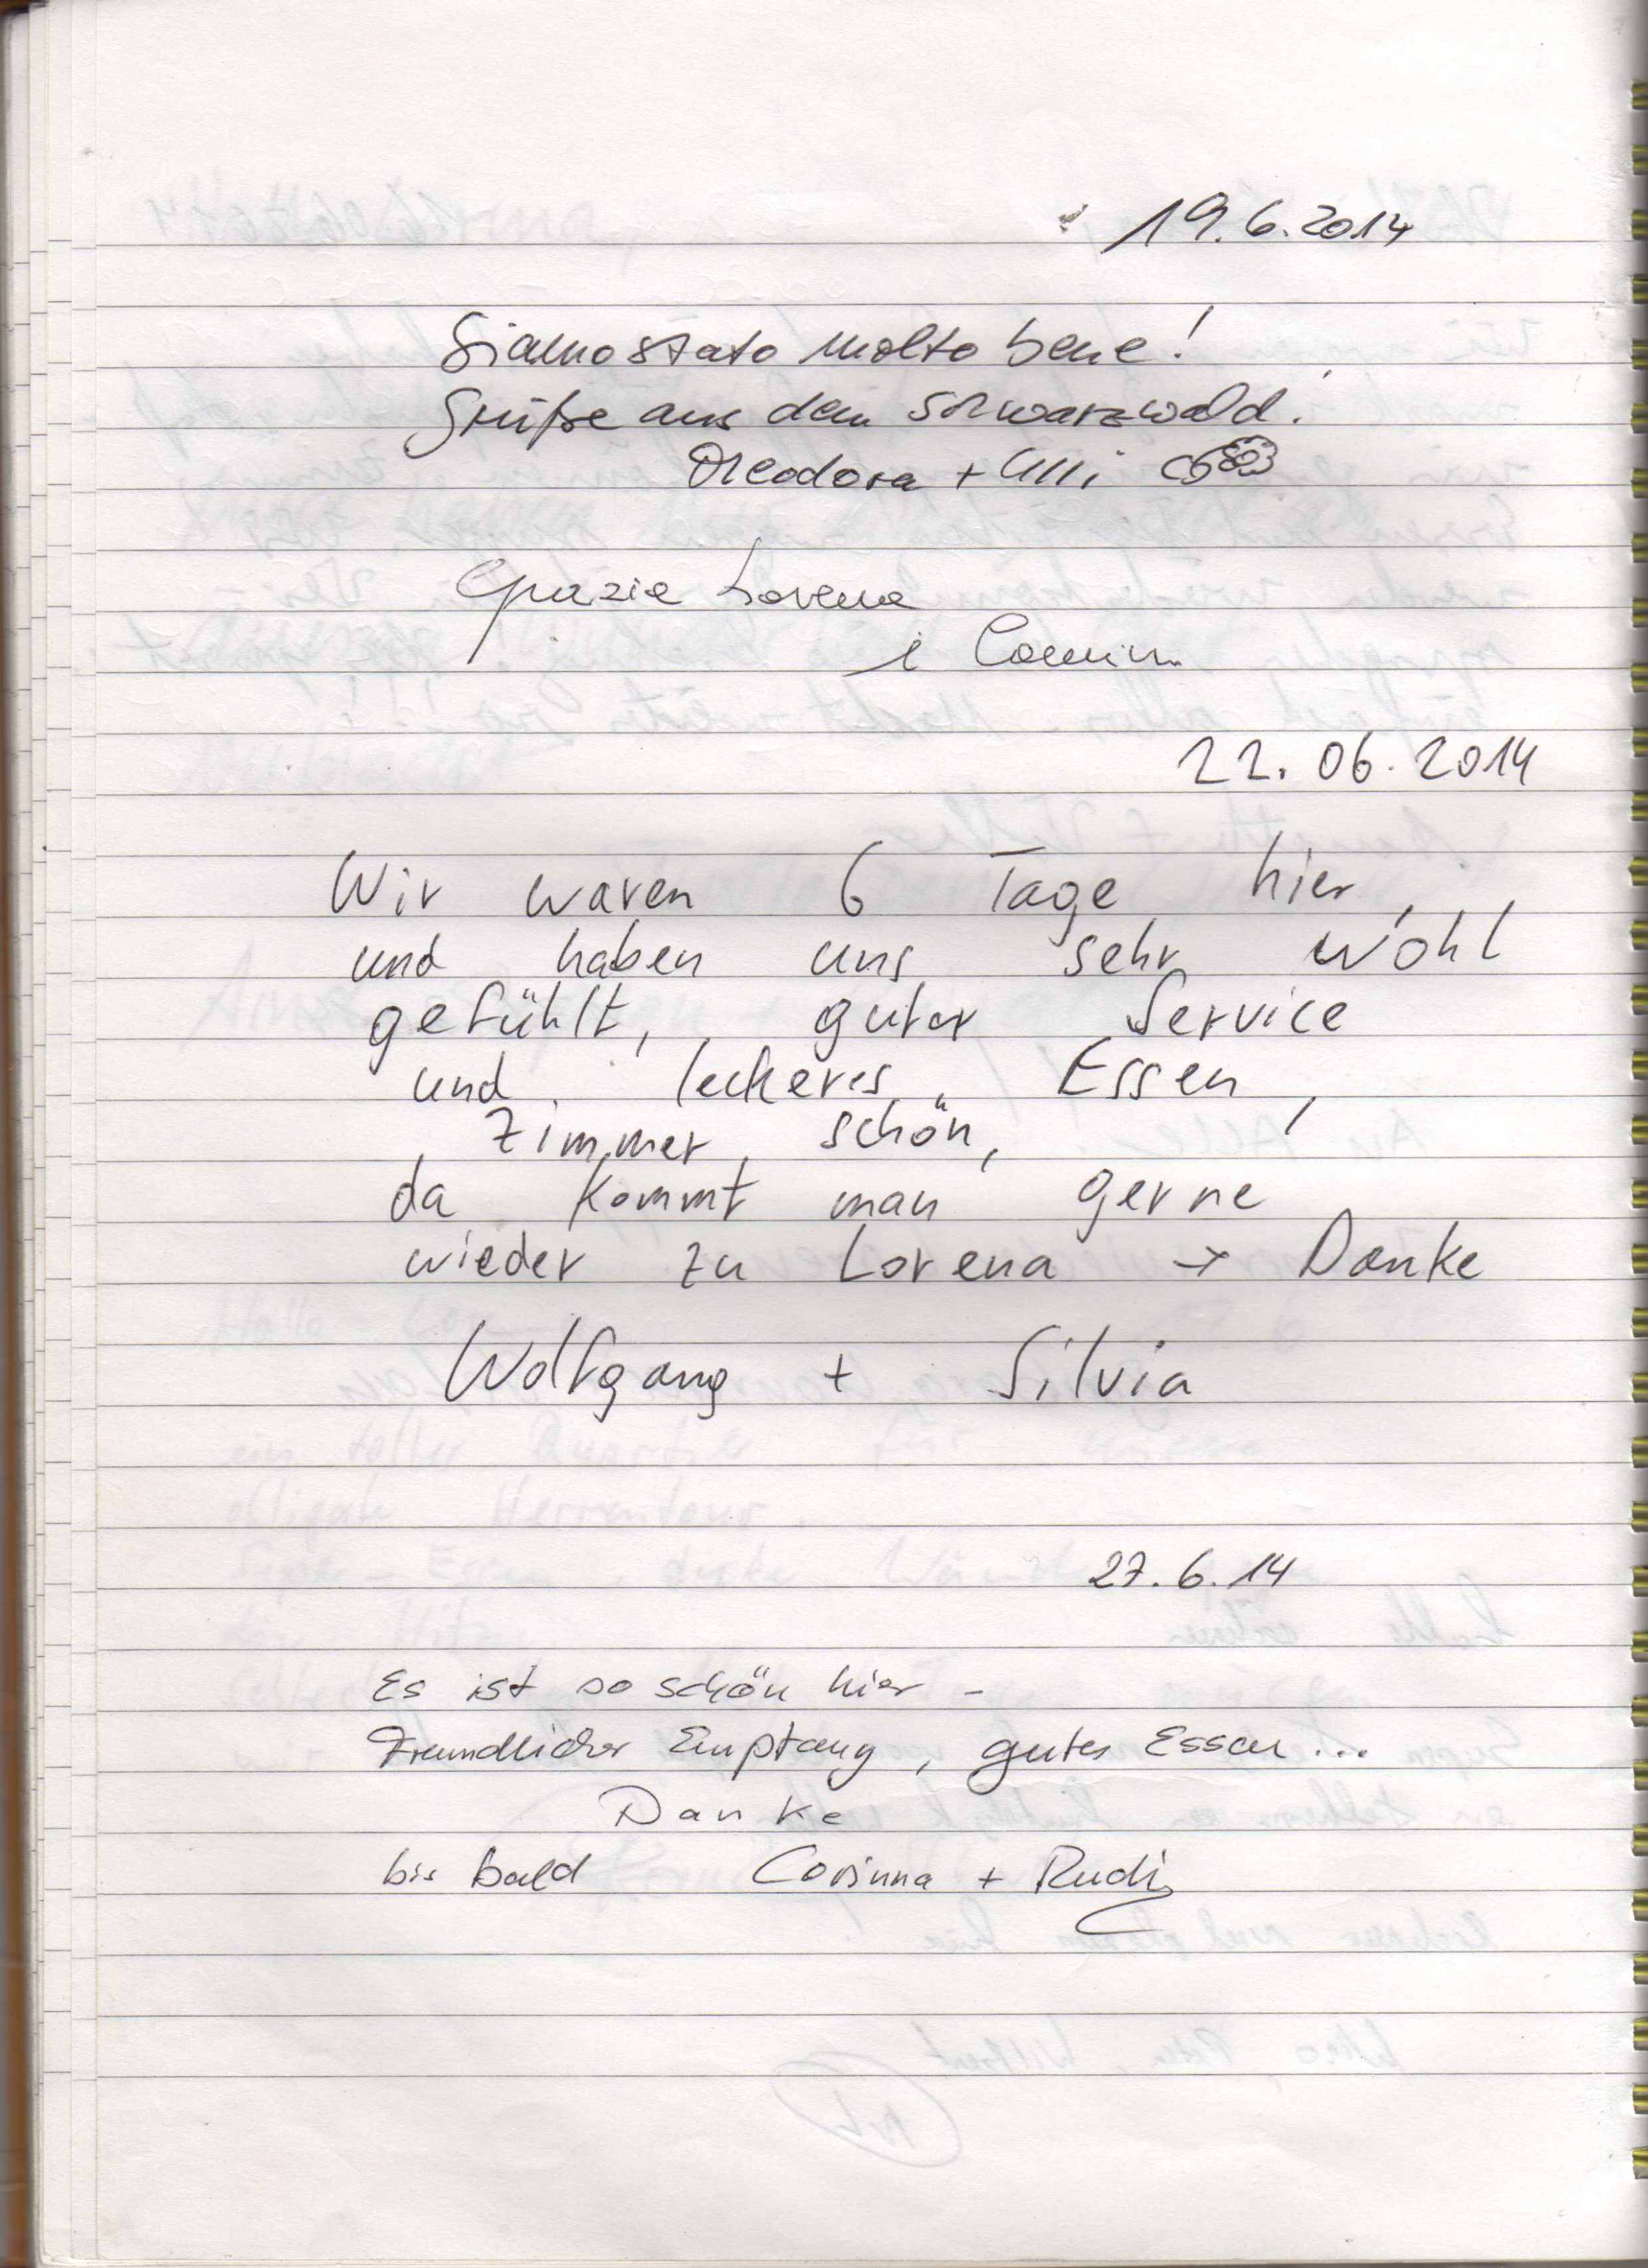 19.6.2014
Siamo stato molto bene!
Grüße aus dem Schwarzwald.
Theodora + Ulli
Grazie Lorena
e
22.06.2014
Wir waren 6 Tage hier,
und haben uns sehr wohl
gefühlt, guter Service
und leckeres Essen,
Zimmer schön,
da kommt man gerne
wieder zu Lorena → Danke
Wolfgang + Silvia
27.6.14
Es ist so schön hier -
Freundlicher Empfang, gutes Essen ...
Danke
bis bald Corinna + Rudi